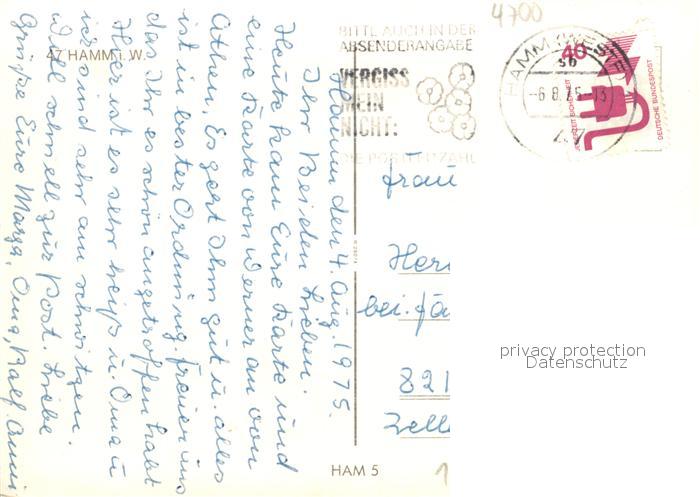 4700
BITTE AUCH IN DER
ABSENDERANGABE
VERGISS
MEIN
NICHT:
DIE POSTLEITZAHL
HAMM (WESTF)
-6.8.75-13
40
JEDERZEIT SICHERHEIT
DEUTSCHE BUNDESPOST
47 HAMM i. W.
Hamm den 4. Aug. 1975.
Ihr Beiden Lieben.
Heute kam Eure Karte und
eine Karte von Werner an von
Athen. Es geht Ihm gut u. alles
ist in bester Ordnung. Freuen uns
das Ihr es schön angetroffen habt
Hier ist es sehr heiß u. Oma u
ich sind sehr am schwitzen.
Will schnell zur Post. Liebe
Grüße Eure Marga, Oma, Ralf
Frau
Herr
bei. Fa
821
Zell
HAM 5
privacy protection
Datenschutz